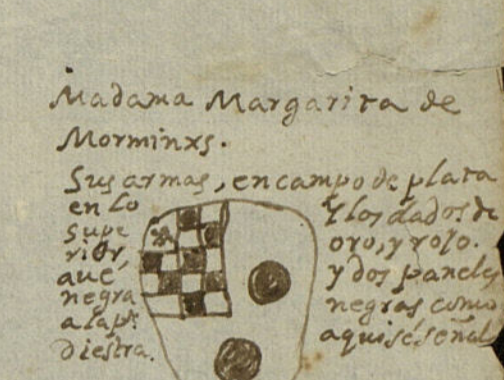 Madama Margarita de
Morminxs.
Sus armas, en campo de plata
en lo
supe
rior,
ave
negra
a la pte
diestra.
Y los dados de
oro, y rojo.
y dos paneles
negras como
aqui sé señala